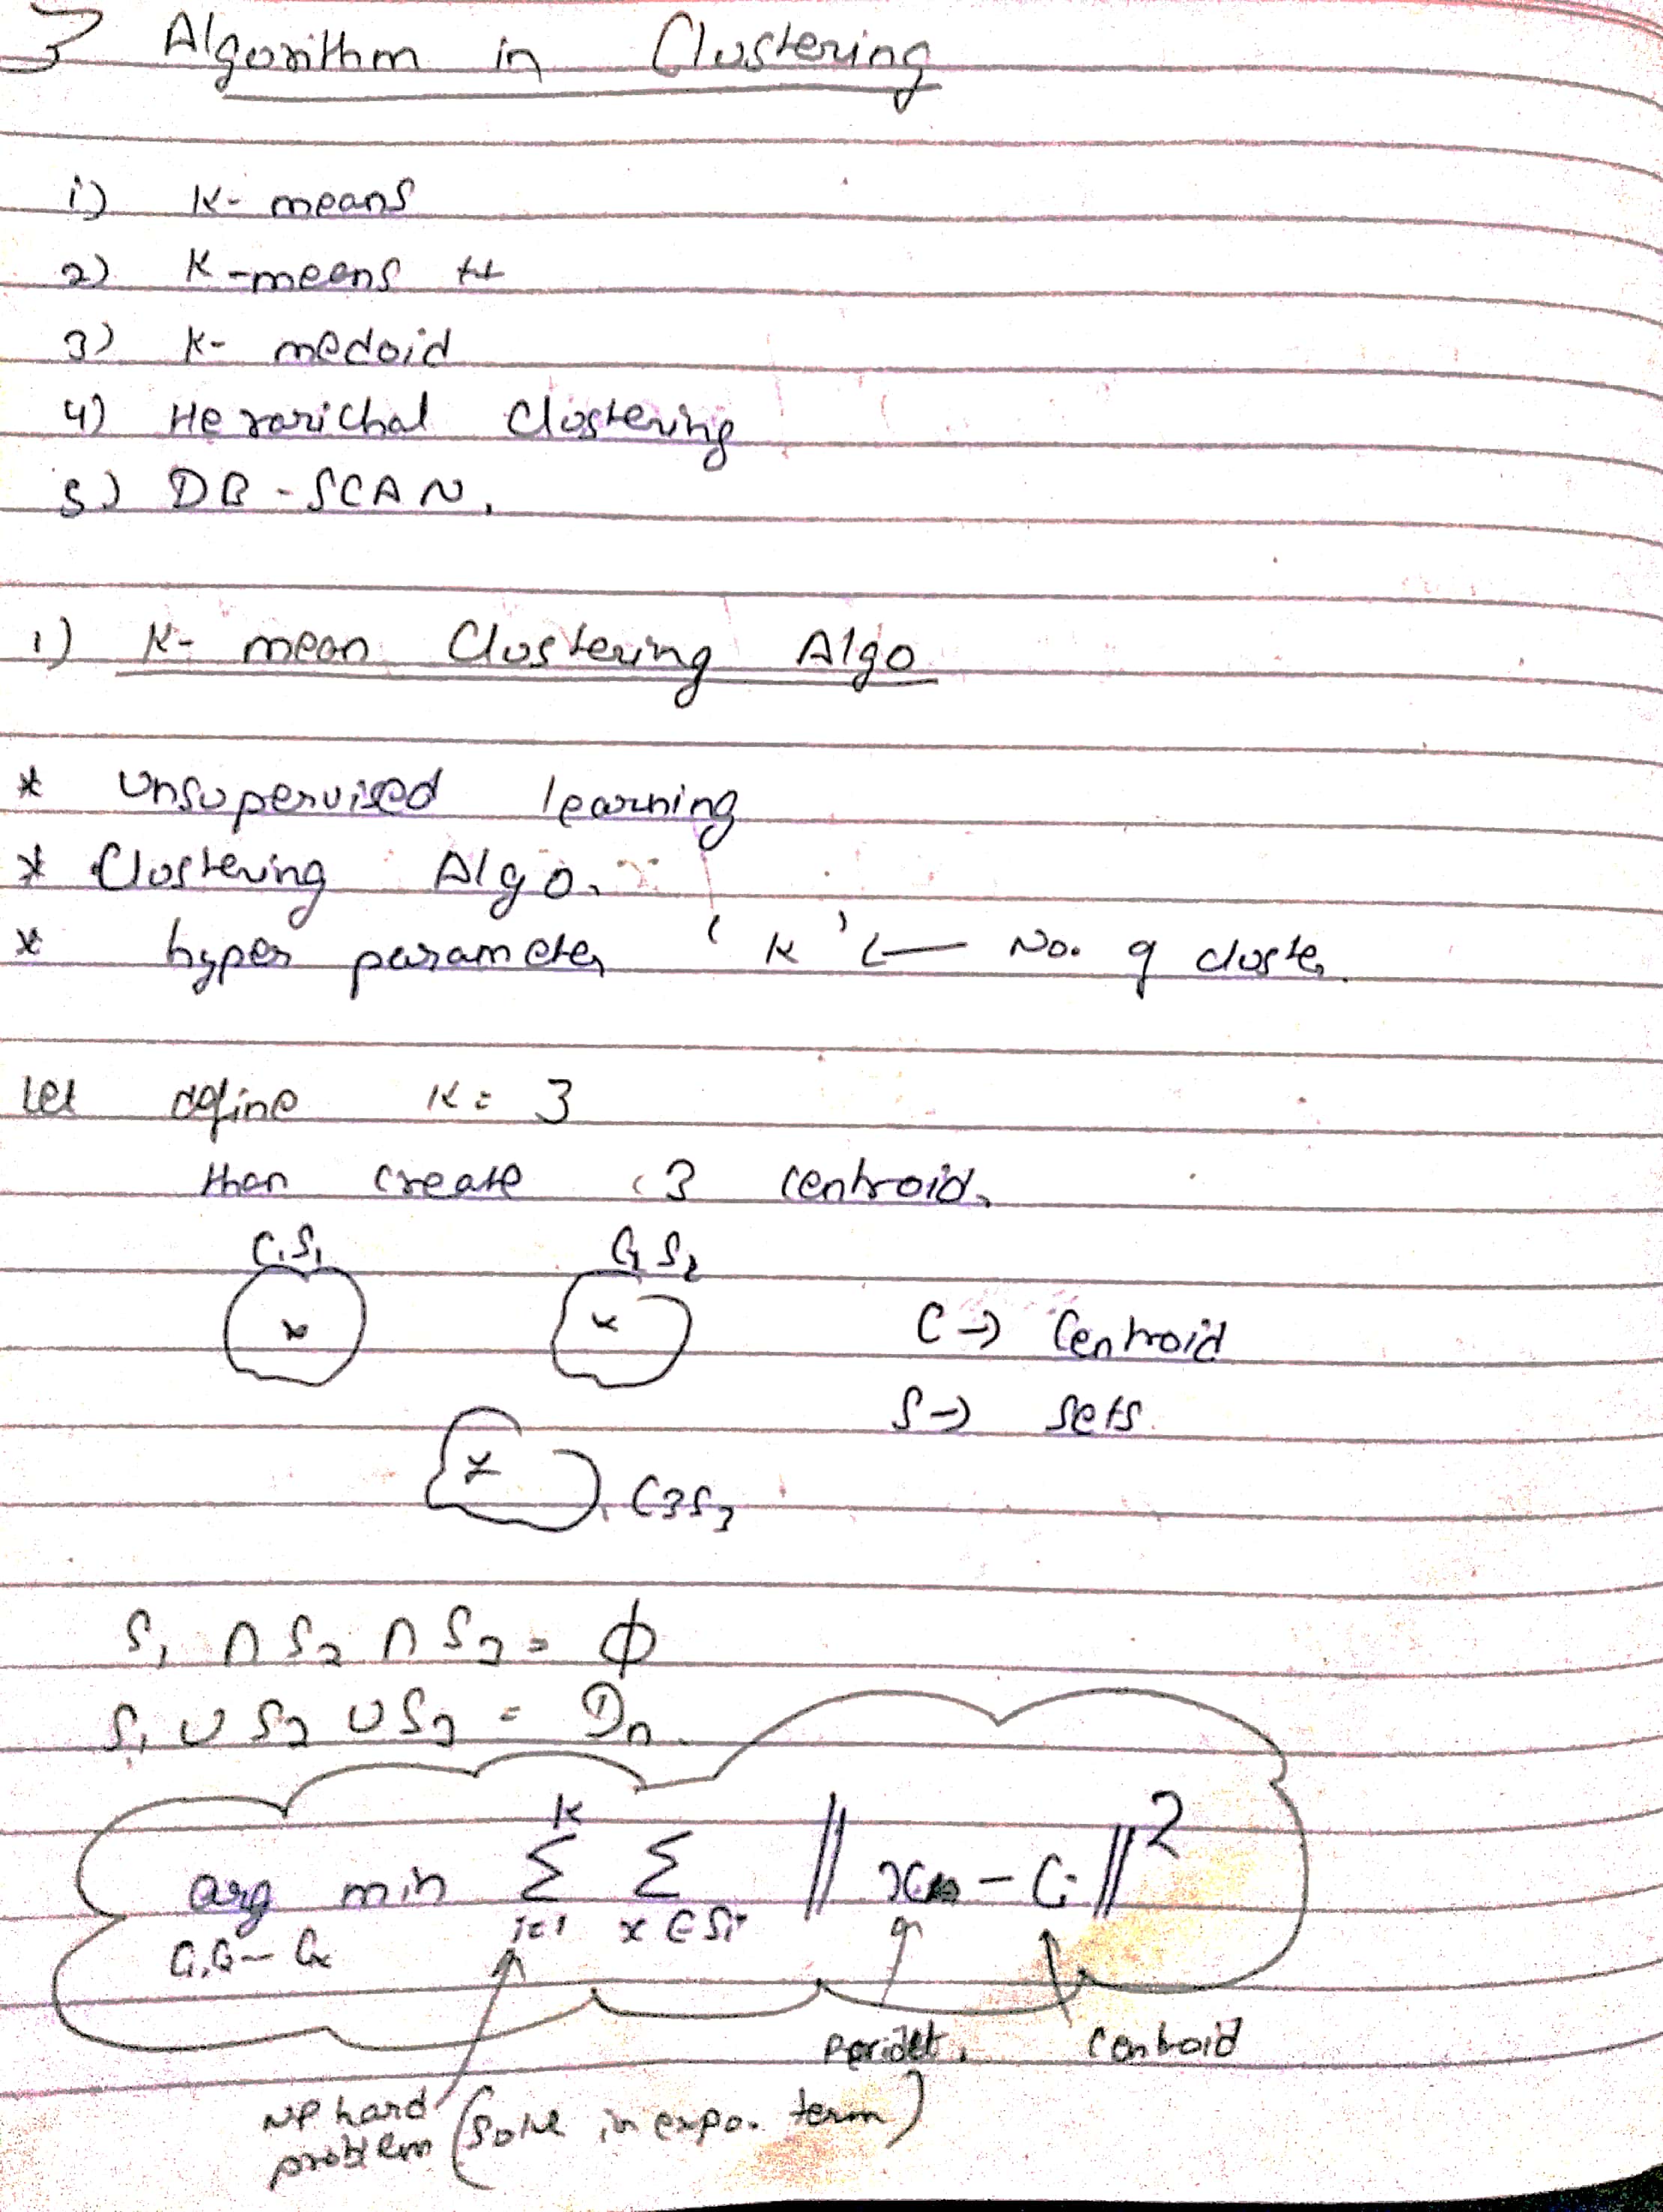 Algorithm in Clustering
1) K- means
2) K-means ++
3) K- medoid
4) Herarichal Clustering
5) DB-SCAN.
1) K- mean Clustering Algo
* Unsupervised learning
* Clustering Algo.
* hyper parameter 'K' ← No. of cluster.
Let define K = 3
then create 3 centroid.
C1S1 C2S2
C → Centroid
S → Sets.
C3S3
S1 ∩ S2 ∩ S3 = ϕ
S1 ∪ S2 ∪ S3 = Dn.
arg min K Σ i=1 Σ x ∈ Si || x - Ci ||²
C1,C2-Ck
Centroid
NP hard problem (Solve in expo. term)